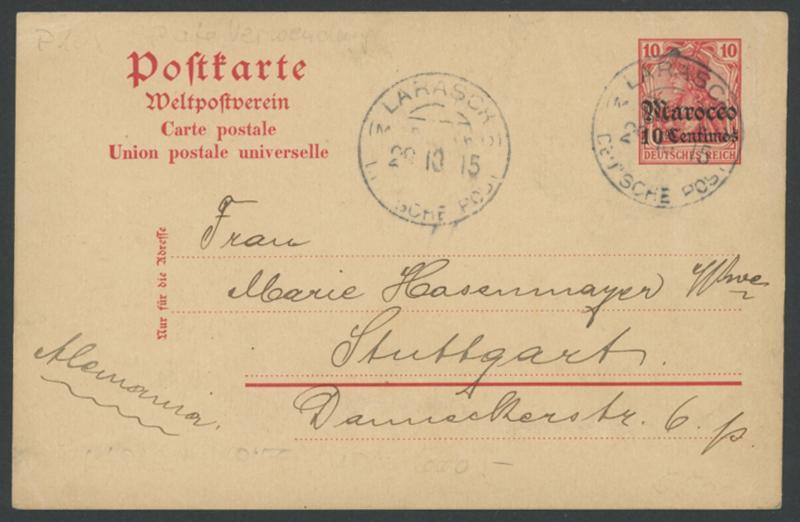 Postkarte
Weltpostverein
Carte postale
Union postale universelle
10 10
Marocco
10 Centimos
DEUTSCHES REICH
LARASCH
29 10 15
DEUTSCHE POST
LARASCH
DEUTSCHE POST
Nur für die Adresse
Frau
Marie Hasenmayer Wwe
Stuttgart.
Alemania.
Danneckerstr. 6 p.